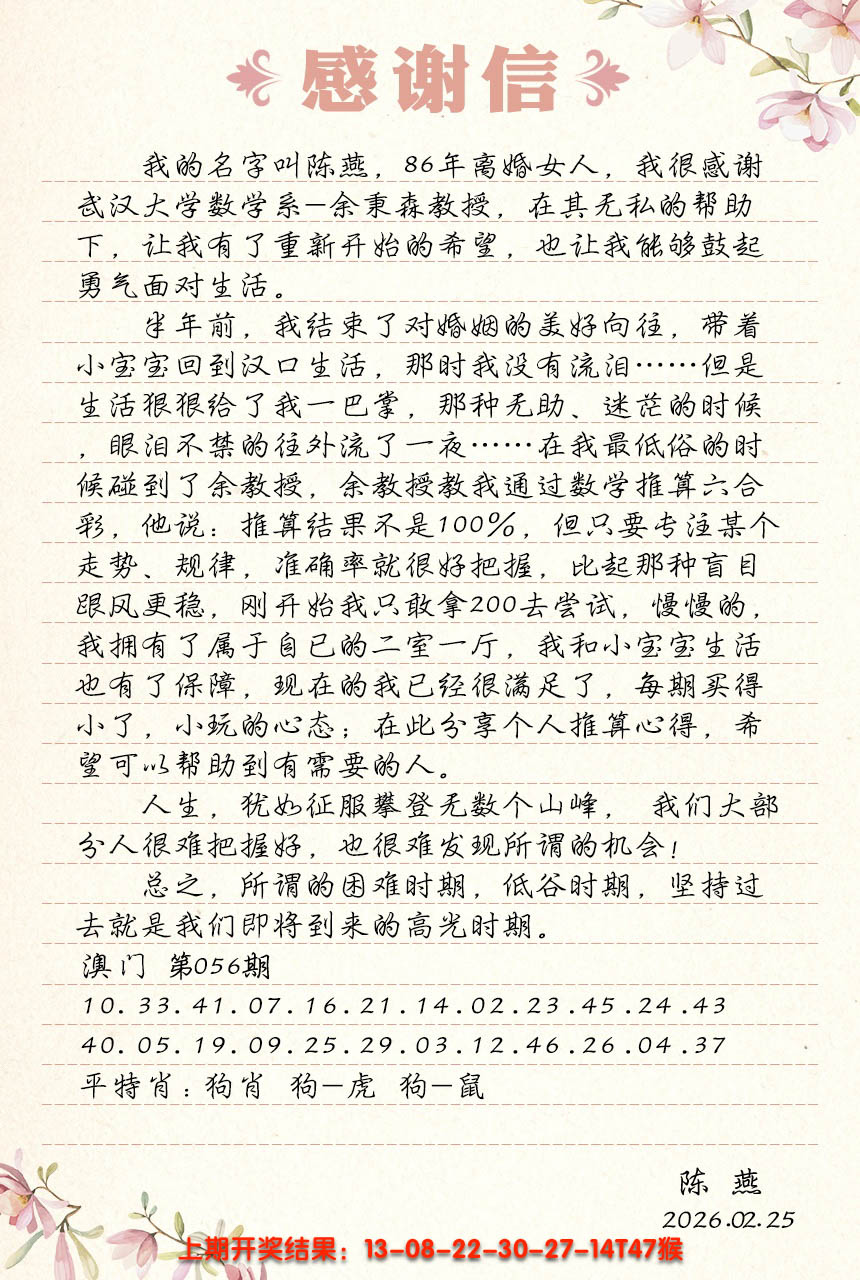 感谢信
我的名字叫陈燕，86年离婚女人，我很感谢
武汉大学数学系—余秉森教授，在其无私的帮助
下，让我有了重新开始的希望，也让我能够鼓起
勇气面对生活。
半年前，我结束了对婚姻的美好向往，带着
小宝宝回到汉口生活，那时我没有流泪……但是
生活狠狠给了我一巴掌，那种无助、迷茫的时候
，眼泪不禁的往外流了一夜……在我最低俗的时
候碰到了余教授，余教授教我通过数学推算六合
彩，他说：推算结果不是100%，但只要专注某个
走势、规律，准确率就很好把握，比起那种盲目
跟风更稳，刚开始我只敢拿200去尝试，慢慢的，
我拥有了属于自已的二室一厅，我和小宝宝生活
也有了保障，现在的我已经很满足了，每期买得
小了，小玩的心态；在此分享个人推算心得，希
望可以帮助到有需要的人。
人生，犹如征服攀登无数个山峰， 我们大部
分人很难把握好，也很难发现所谓的机会！
总之，所谓的困难时期，低谷时期，坚持过
去就是我们即将到来的高光时期。
澳门 第056期
10.33.41.07.16.21.14.02.23.45.24.43
40.05.19.09.25.29.03.12.46.26.04.37
平特肖：狗肖 狗—虎 狗—鼠
陈 燕
2026.02.25
上期开奖结果：13-08-22-30-27-14T47猴